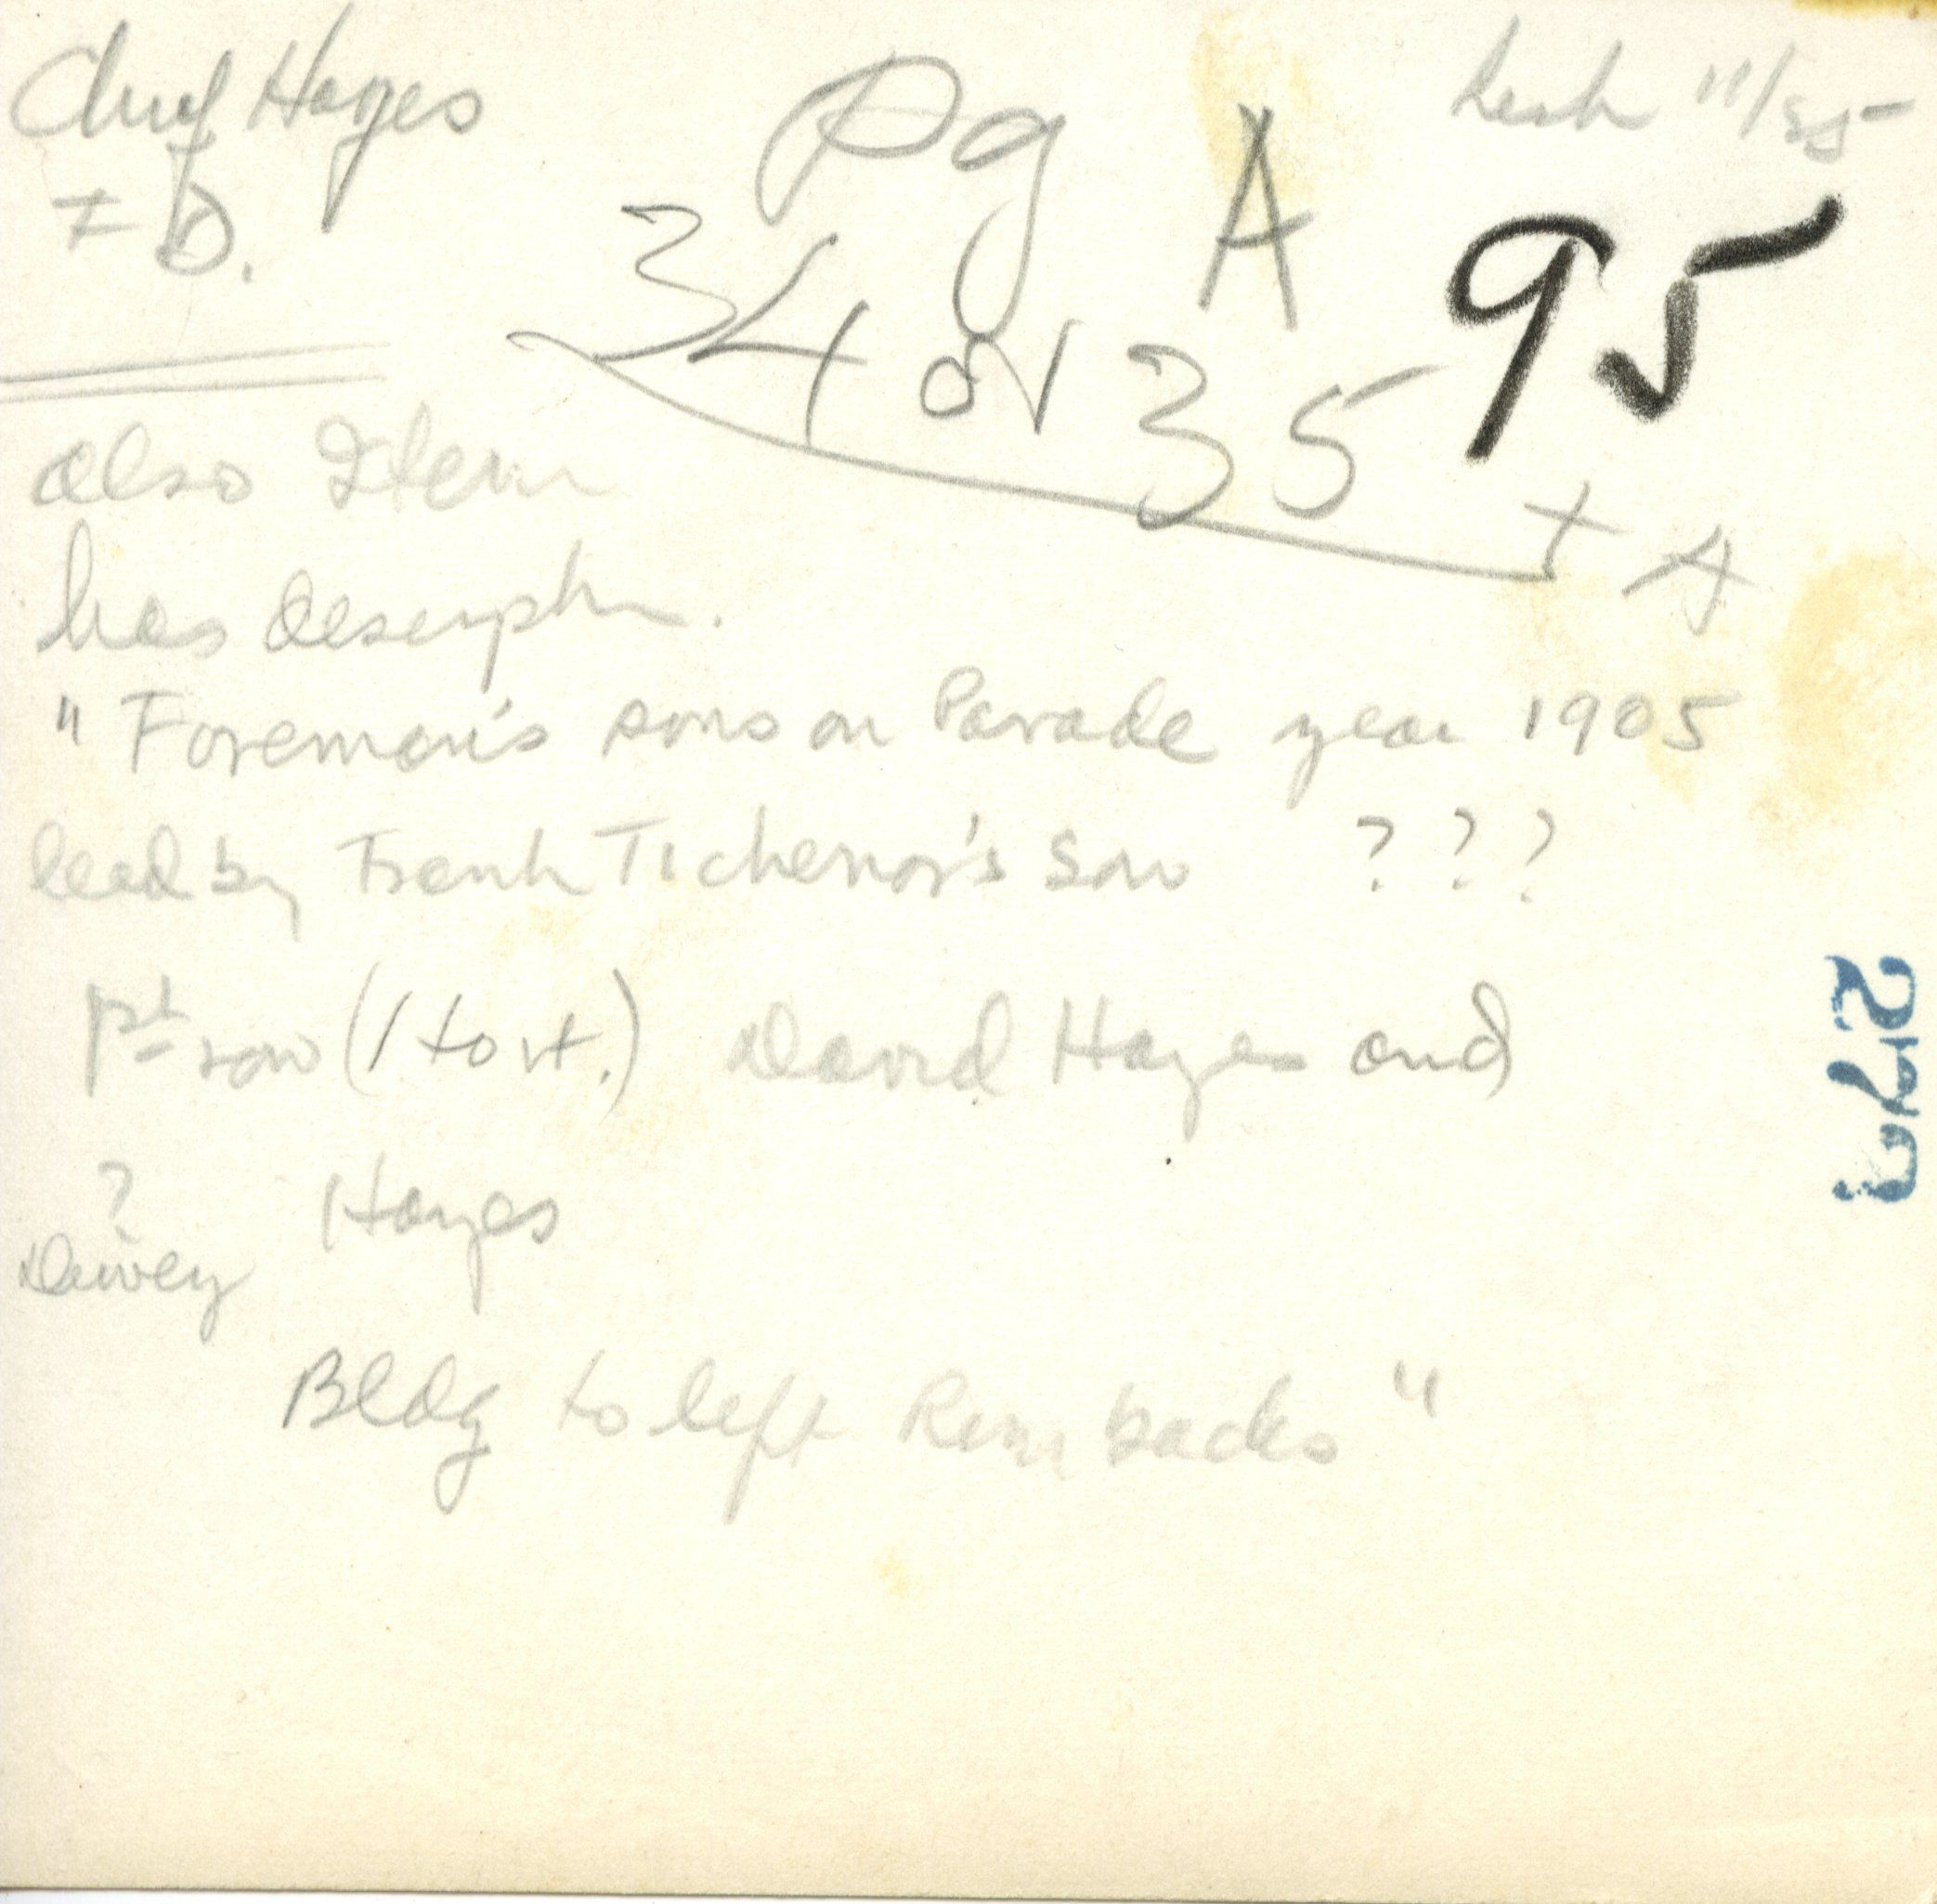 Chief Hayes
F.D.
Pg A
34 or 35
11/85
95
+ A
also Item
has descriptn.
" Foremen's sons on Parade year 1905
lead by Frank Tichenor's Son ? ? ?
1st row (l to rt.) David Hayes and
? Hayes
Dewey
Bldg to left Rembacks "
277